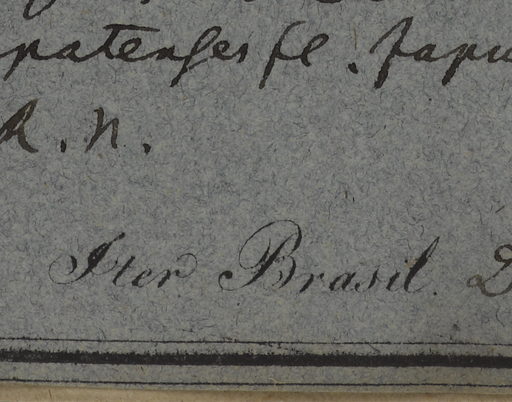 patenses fl. papu
R. n.
Iter Brasil. D